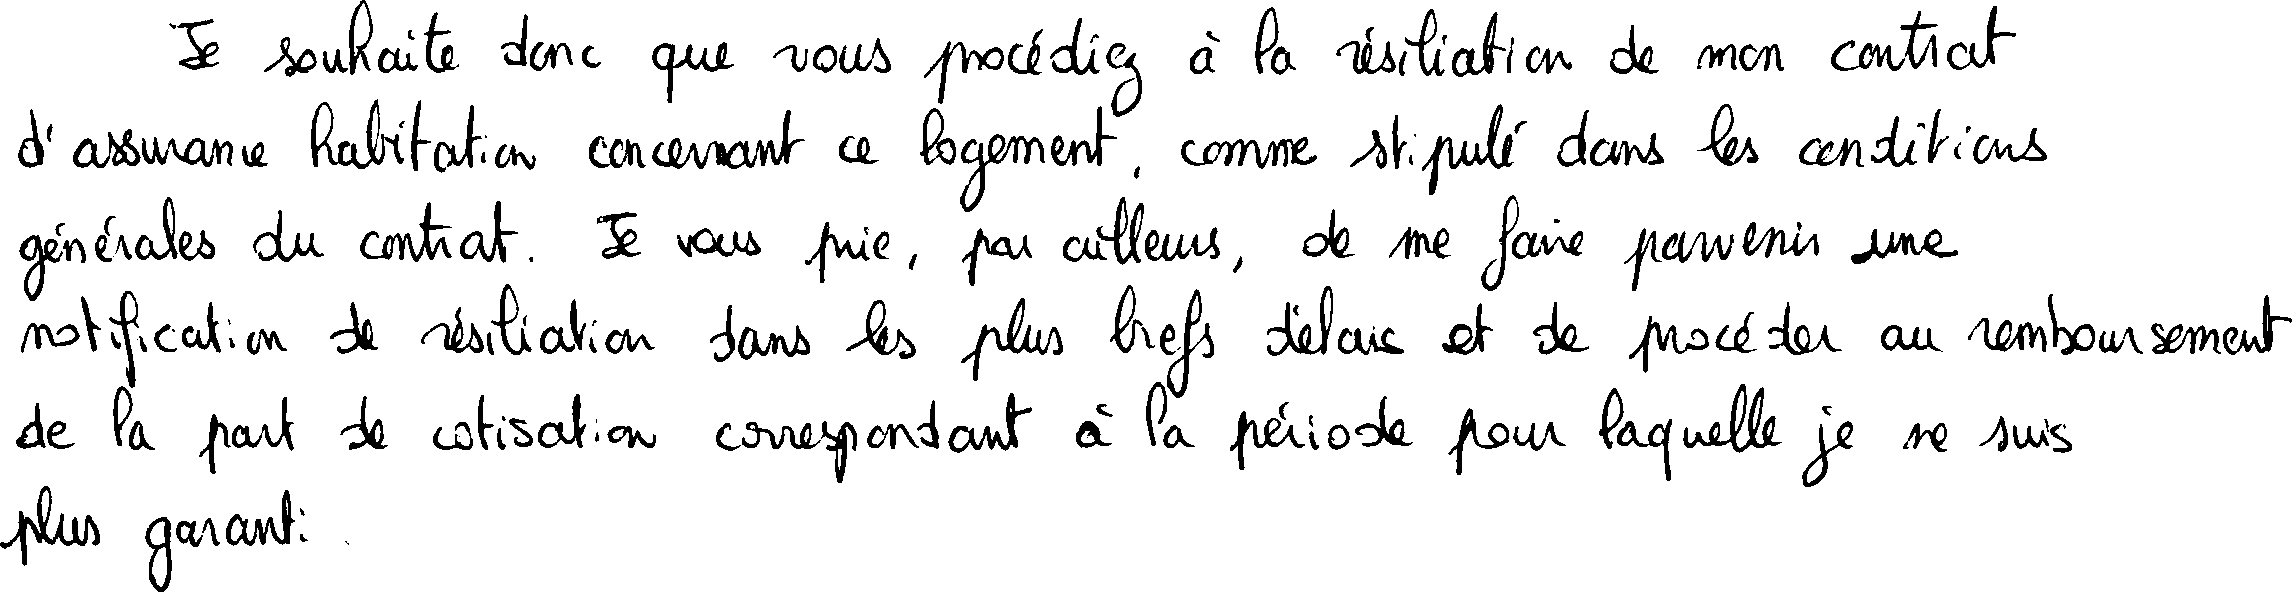 Je souhaite donc que vous procédiez à la résiliation de mon contrat
d'assurance habitation concernant ce logement, comme stipulé dans les conditions
générales du contrat. Je vous prie, par ailleurs, de me faire parvenir une
notification de résiliation dans les plus brefs délais et de procéder au remboursement
de la part de cotisation correspondant à la période pour laquelle je ne suis
plus garanti.